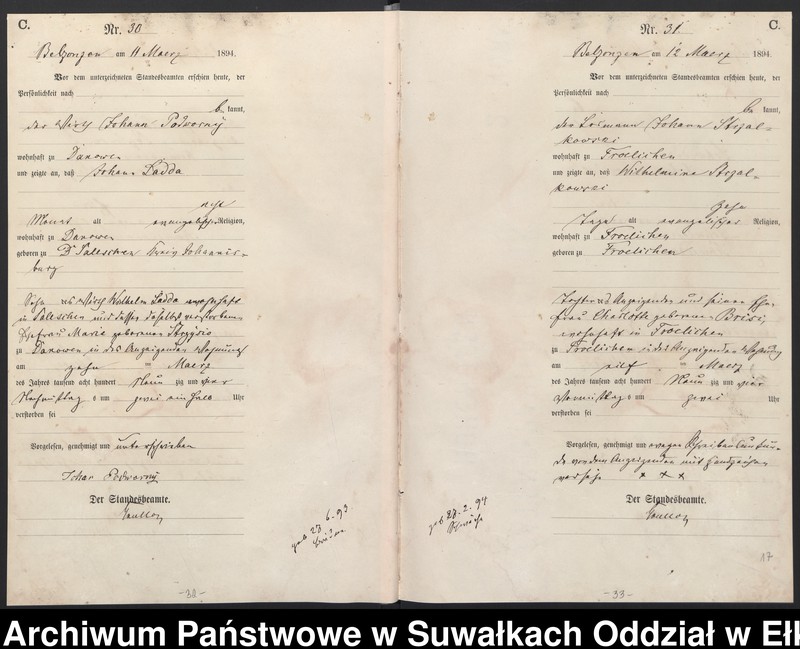 C.
Nr. 30
Belzonzen am 11 Maerz 1894.
Vor dem unterzeichneten Standesbeamten erschien heute, der
Persönlichkeit nach
be kannt,
der Wirth Johann Podworny
wohnhaft zu Danowen
und zeigte an, daß Johann Ladda
acht
Monat alt evangelischer Religion,
wohnhaft zu Danowen
geboren zu Salleschen Kreis Johannis-
burg
Sohn des Wirth Wilhelm Ladda wohnhaft
in Salleschen und dessen daselbst verstorbenen
Ehefrau Marie geborenen
zu Danowen in des Anzeigenden Wohnung
am zehn ten Maerz
des Jahres tausend acht hundert Neun zig und vier
Nachmittags um zwei ein halb Uhr
verstorben sei
Vorgelesen, genehmigt und unterschrieben
Johan Podworny
Der Standesbeamte.
geb 23 6. 93
C.
Nr. 31
Belzonzen am 12 Maerz 1894
Vor dem unterzeichneten Standesbeamten erschien heute, der
Persönlichkeit nach
be kannt,
der Losmann Johann Stzal-
kowski
wohnhaft zu Froelichen
und zeigte an, daß Wilhelmine Stzal-
kowski
zehn
Tage alt evangelischer Religion,
wohnhaft zu Froelichen
geboren zu Froelichen
Tochter des Anzeigenden und seiner Ehe-
frau Charlotte geborenen
wohnhaft in Froelichen
zu Froelichen in des Anzeigenden Wohnung
am elf ten Maerz
des Jahres tausend acht hundert Neun zig und vier
Vormittags um zwei Uhr
verstorben sei
Vorgelesen, genehmigt und wegen Schreibensunkun-
de von dem Anzeigenden mit Handzeichen
versehen + + +
Der Standesbeamte.
geb 28. 2. 94
Schwäche
17
-33-
Archiwum Państwowe w Suwałkach Oddział w Ełk